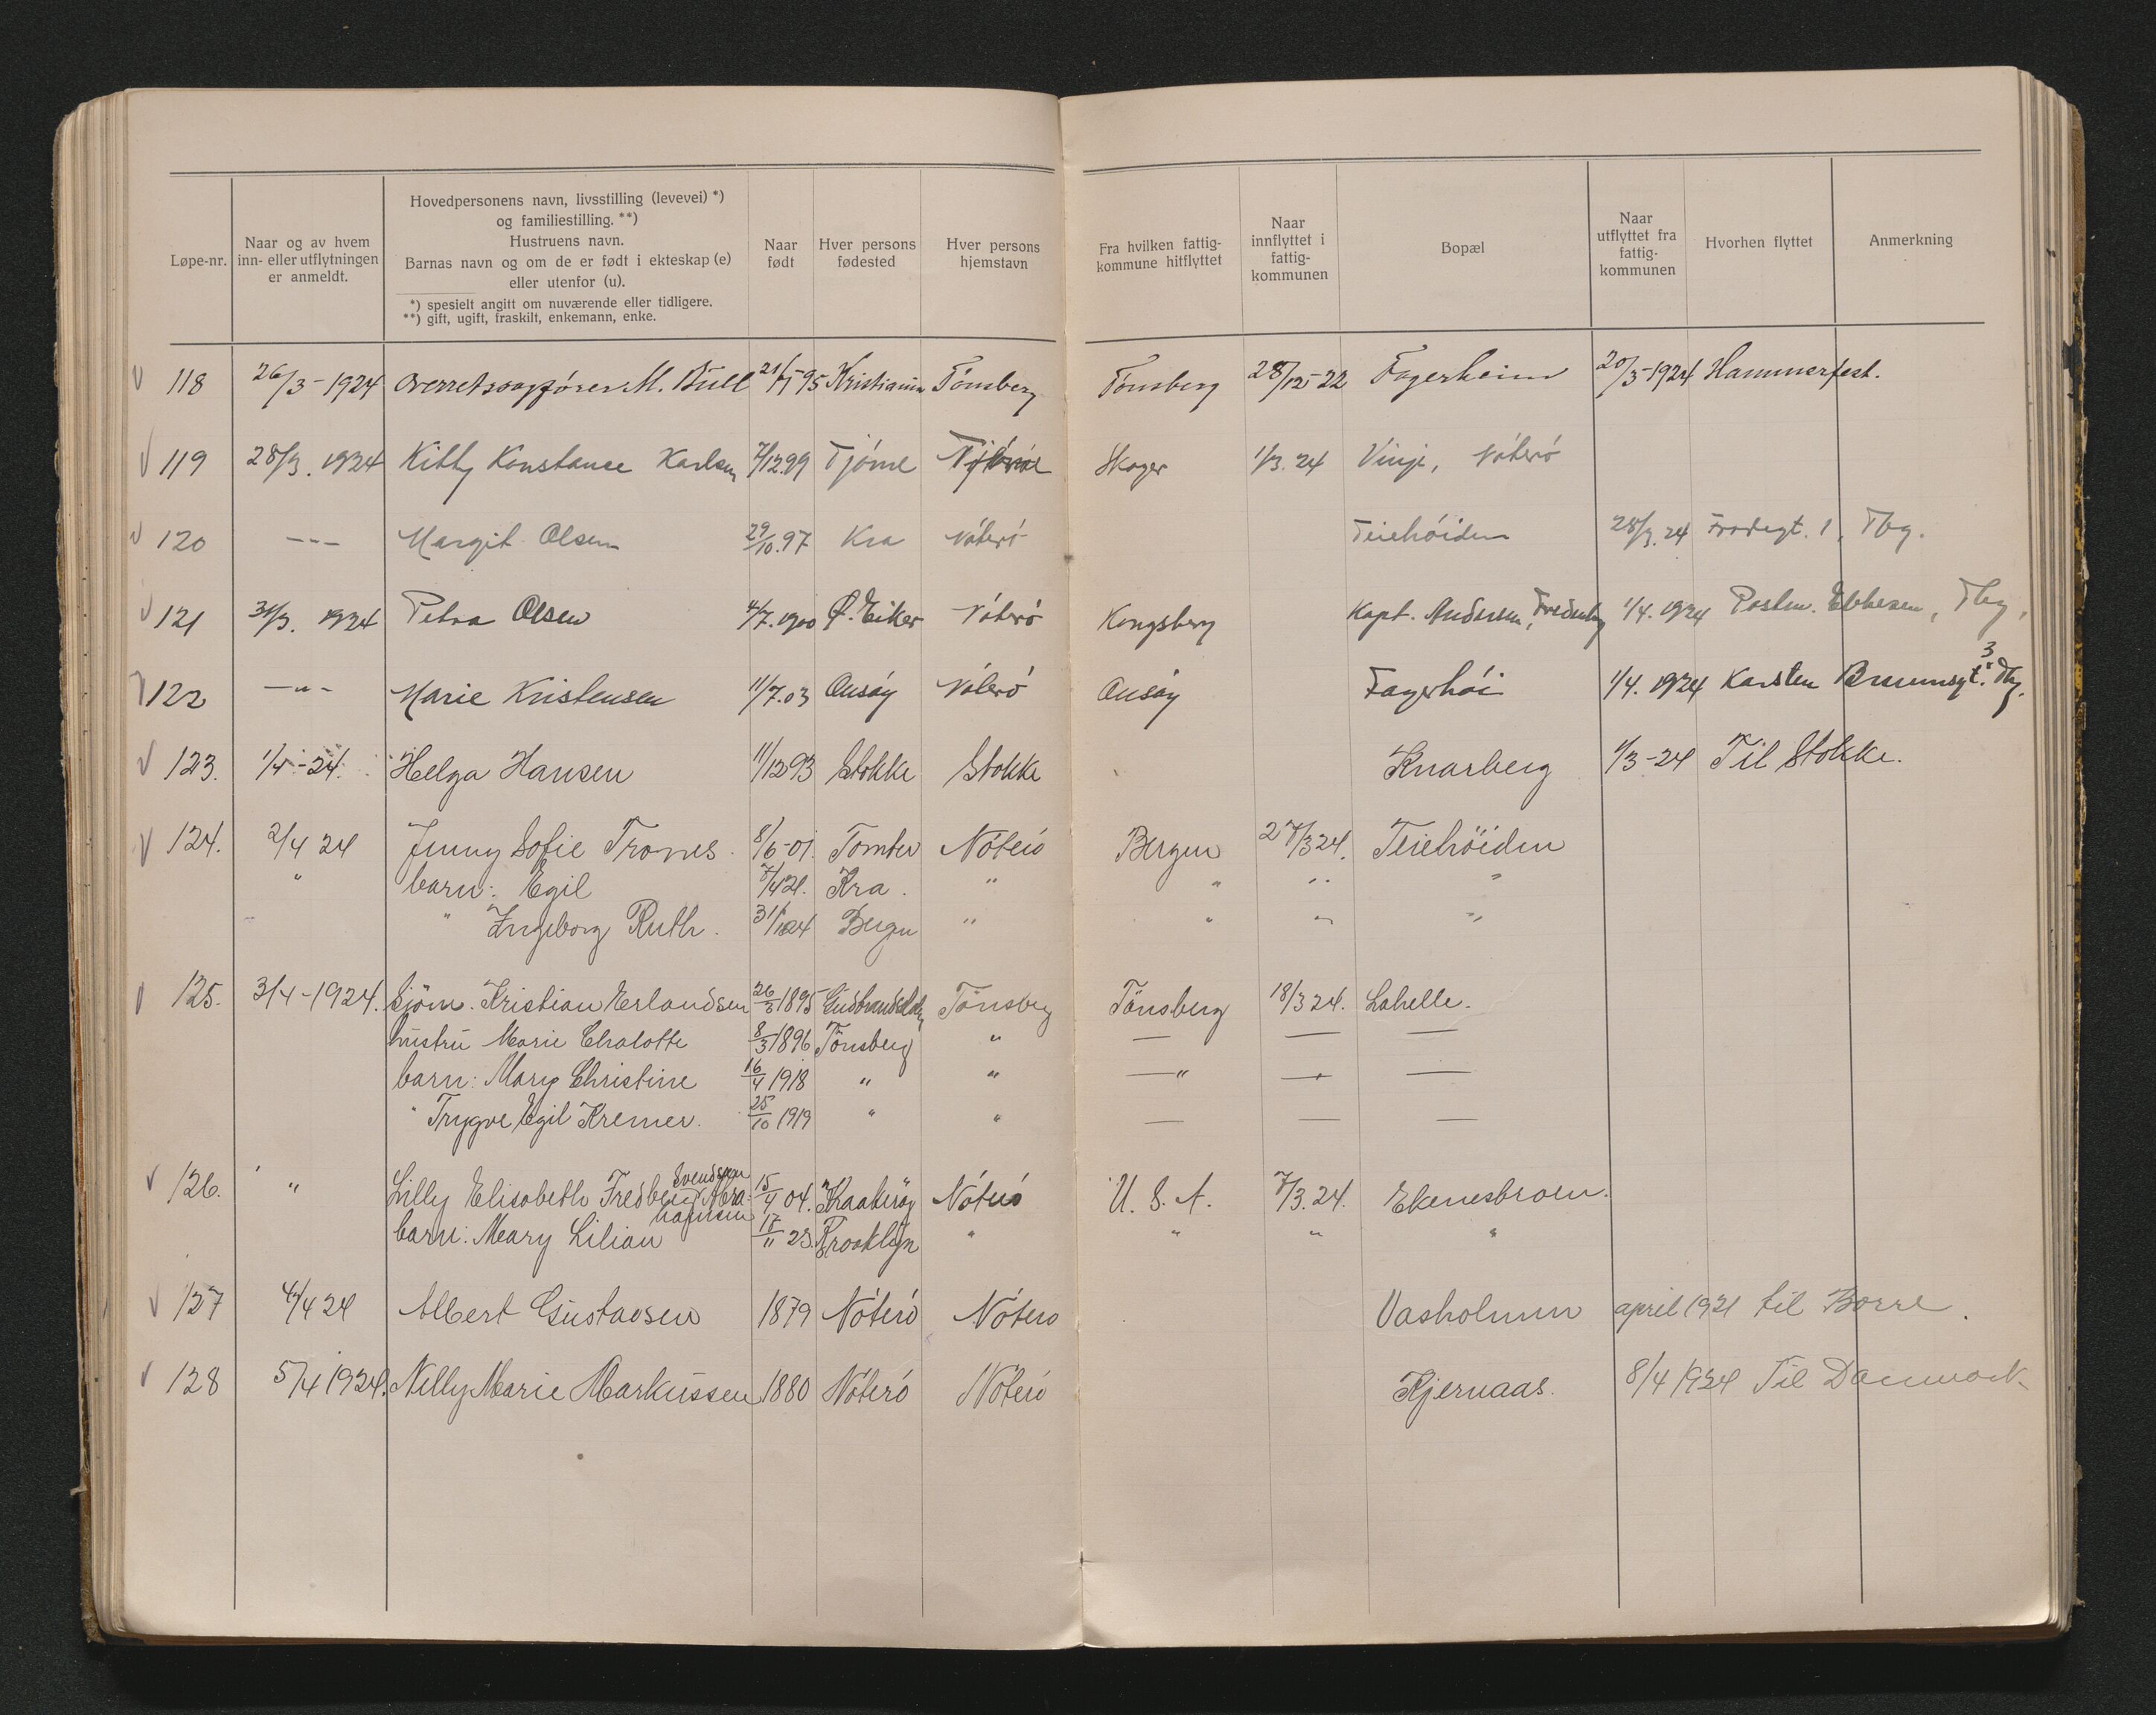 Løpe-nr.
Naar og av hvem
inn- eller utflytningen
er anmeldt.
Hovedpersonens navn, livsstilling (levevei) *)
og familiestilling. **)
Hustruens navn.
Barnas navn og om de er født i ekteskap (e)
eller utenfor (u).
*) spesielt angitt om nuværende eller tidligere.
**) gift, ugift, fraskilt, enkemann, enke.
Naar
født
Hver persons
fødested
Hver persons
hjemstavn
Fra hvilken fattig-
kommune hitflyttet
Naar
innflyttet i
fattig-
kommunen
Bopæl
Naar
utflyttet fra
fattig-
kommunen
Hvorhen flyttet
Anmerkning
118 26/3-1924 Overretssagfører M. Bull 95 Kristiania Tønsberg Tønsberg 28/12-22 Fagerheim 20/3-1924 Hammerfest.
119 28/3. 1924 Kitty Konstance Karlsen 7/12.99 Tjøme Skoger 1/3. 24 Vinje, Nøterø
120 -"- Margit Olsen 29/10.97 Kra Nøterø Teiehøiden 28/3.24 1, Tbg.
121 31/3. 1924 Petra Olsen 4/7.1900 Ø. Eiker Nøterø Kongsberg Kapt. Andersen, 1/4. 1924 Postm. Ebbesen, Tbg.
122 -"- Marie Kristensen 11/7.03 Onsøy Nøterø Onsøy Fagerhøi 1/4. 1924 Karsten Bruunsgt. 3 Tbg.
123. 1/4-24. Helga Hansen 11/12 93 Stokke Stokke Knarberg 1/3-24 Til Stokke.
124. 2/4 24 Jenny Sofie Trones 8/6-01. Tomter Nøterø Bergen 27/3 24. Teiehöiden
" barn: Egil 7/4 21. Kra. " " " "
" Ingeborg Ruth. 31/1 24 Bergen " " " "
125. 3/4-1924. Sjöm. Kristian Erlandsen 1895 Gudbrandsdalen Tönsberg Tönsberg 18/3 24. Lahelle.
hustru Marie Chalotte 8/3 1896 Tönsberg " — — —
barn: Mary Christine 16/4 1918 " " —"— — —
" Trygve Egil Kremer. 25/10 1919 " " — — —
126. " Lilly Elisabeth Fredberg Svendsen Abrahamsen 15/4 04. Kraakerøy Nøterø U. S. A. 7/3. 24. Ekenesbroen.
barn: Mary Lilian 17/11 23. Brooklyn " " " "
127 4/4 24 Albert Gustavsen 1879 Nøterø Nøterø Vasholmen april 1921 til Borre.
128 5/4 1924. Nelly Marie Markussen 1880 Nøterø Nøterø Kjernaas. 8/4 1924 Til Danmark